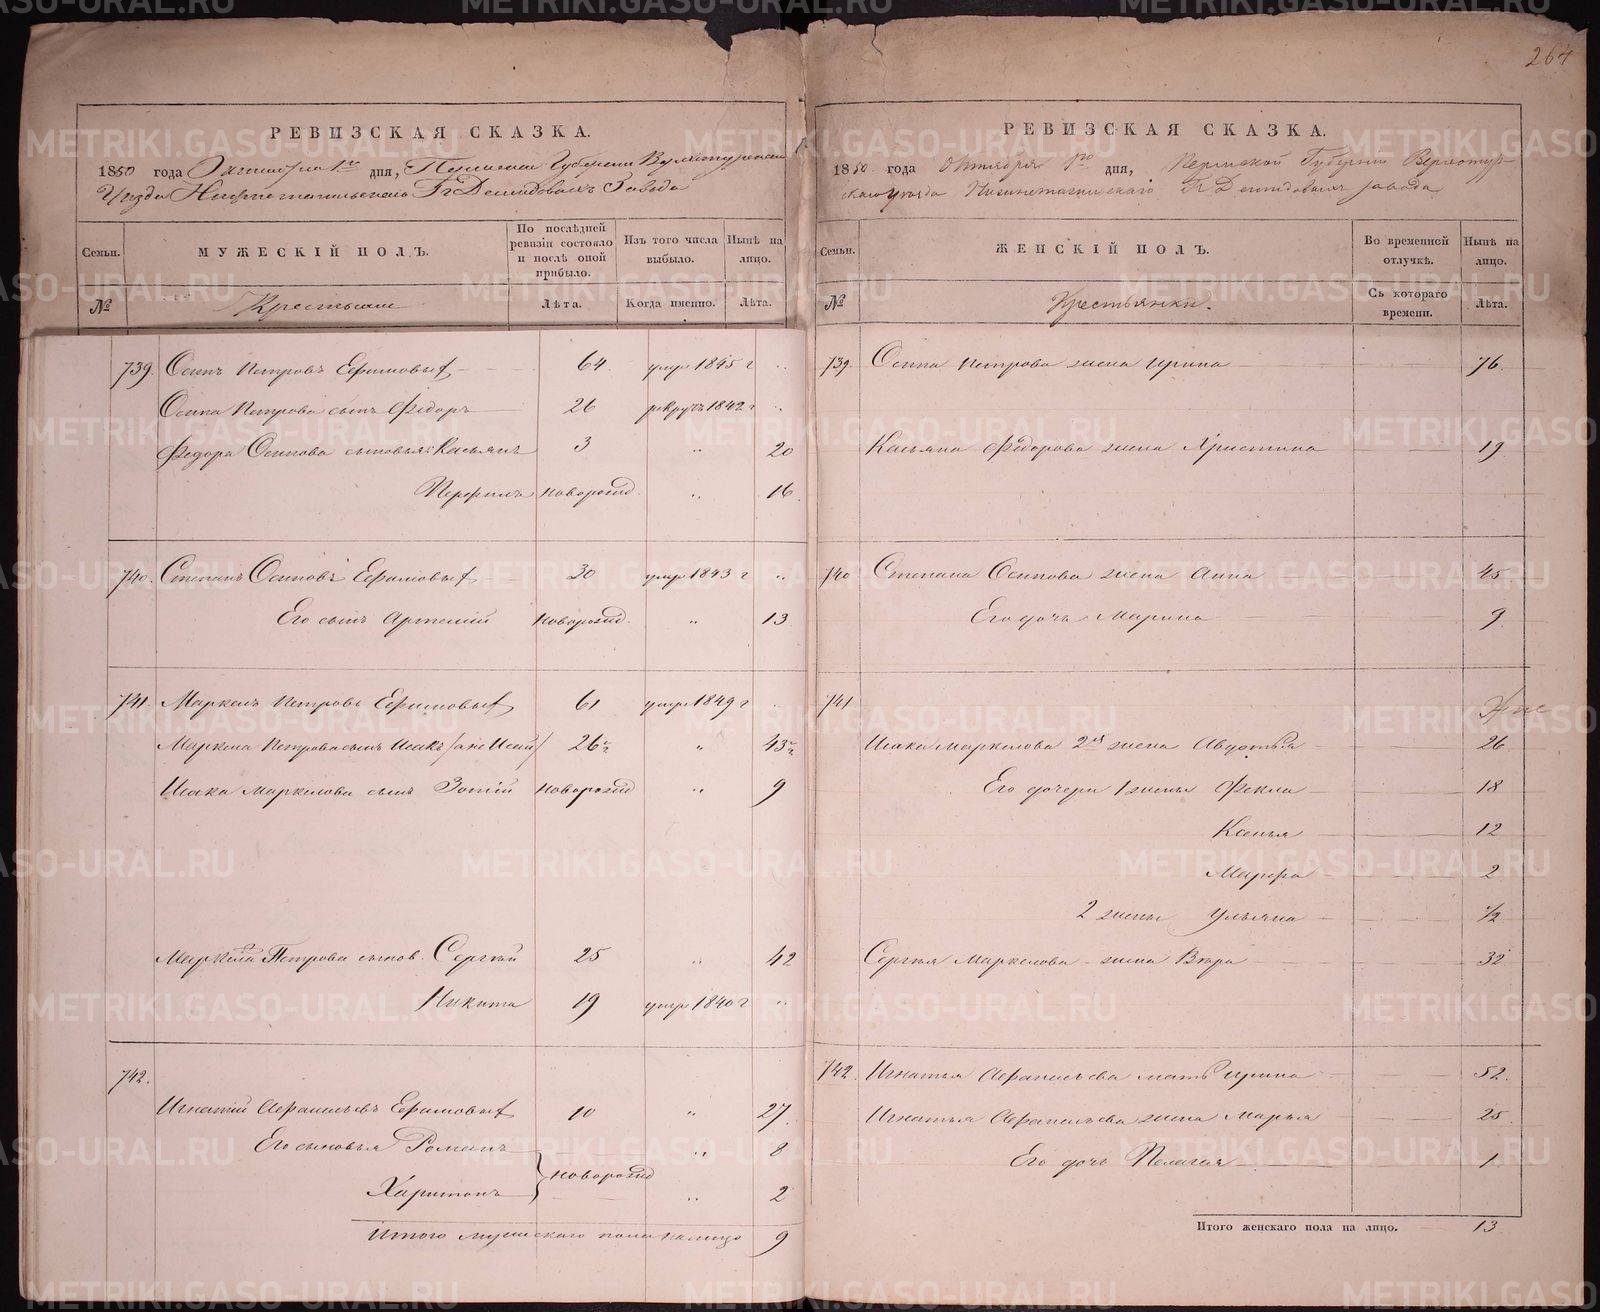 264
РЕВИЗСКАЯ СКАЗКА.
1850 года Октября 1го дня, Пермской Губернии Верхотурскаго
Уѣзда Нижнетагильскаго Гг Демидовыхъ Завода
Семьи.
МУЖЕСКІЙ ПОЛЪ.
По послѣдней ревизіи состояло и послѣ оной прибыло.
Изъ того числа выбыло.
Нынѣ на лицо.
№
Крестьяне
Лѣта.
Когда именно.
Лѣта.
739. Осипъ Петровъ Ефимовыхъ 64 умре 1845 г „
Осипа Петрова сынъ Фёдоръ 26 рекрутъ 1842 г „
Федора Осипова сыновья: Касьянъ 3 „ 20
Перфилъ новорожд. „ 16.
740. Степанъ Осиповъ Ефимовыхъ 30 умре 1843 г „
Его сынъ Артемій новорожд. „ 13
741. Маркелъ Петровъ Ефимовыхъ 61 умре 1849 г „
Маркела Петрова сынъ Исакъ /а не Исай/ 26½ „ 43½
Исака Маркелова сынъ Зотій новорожд „ 9
Маркела Петрова сынов. Сергѣй 25 „ 42
Никита 19 умре 1840 г „
742.
Игнатій Афанасьевъ Ефимовыхъ 10 „ 27.
Его сыновья Романъ „ 8
новорожд
Харитонъ „ 2
Итого мужскаго пола налицо 9
РЕВИЗСКАЯ СКАЗКА.
1850 года Октября 1го дня, Пермской Губерніи Верхотур-
скаго уѣзда Нижнетагильскаго Гг Демидовыхъ завода
Семьи.
ЖЕНСКІЙ ПОЛЪ.
Во временной отлучкѣ.
Нынѣ на лицо.
№
Крестьянки.
Съ котораго времени.
Лѣта.
739. Осипа Петрова жена Ирина 76.
Касьяна Фёдорова жена Христина 19
740 Степана Осипова жена Анна 45
Его дочь Марина 9.
741
Исака Маркелова 2я жена Авдотья 26
Его дочери 1 жены Фекла 18
Ксенья 12
Марфа 2
2 жены Ульяна ½
Сергѣя Маркелова жена Вѣра 32
742. Игнатья Афанасьева мать Ирина 52.
Игнатья Афанасьева жена Марья 25
Его дочь Пелагея 1.
Итого женскаго пола на лицо. 13
METRIKI.GASO-URAL.RU